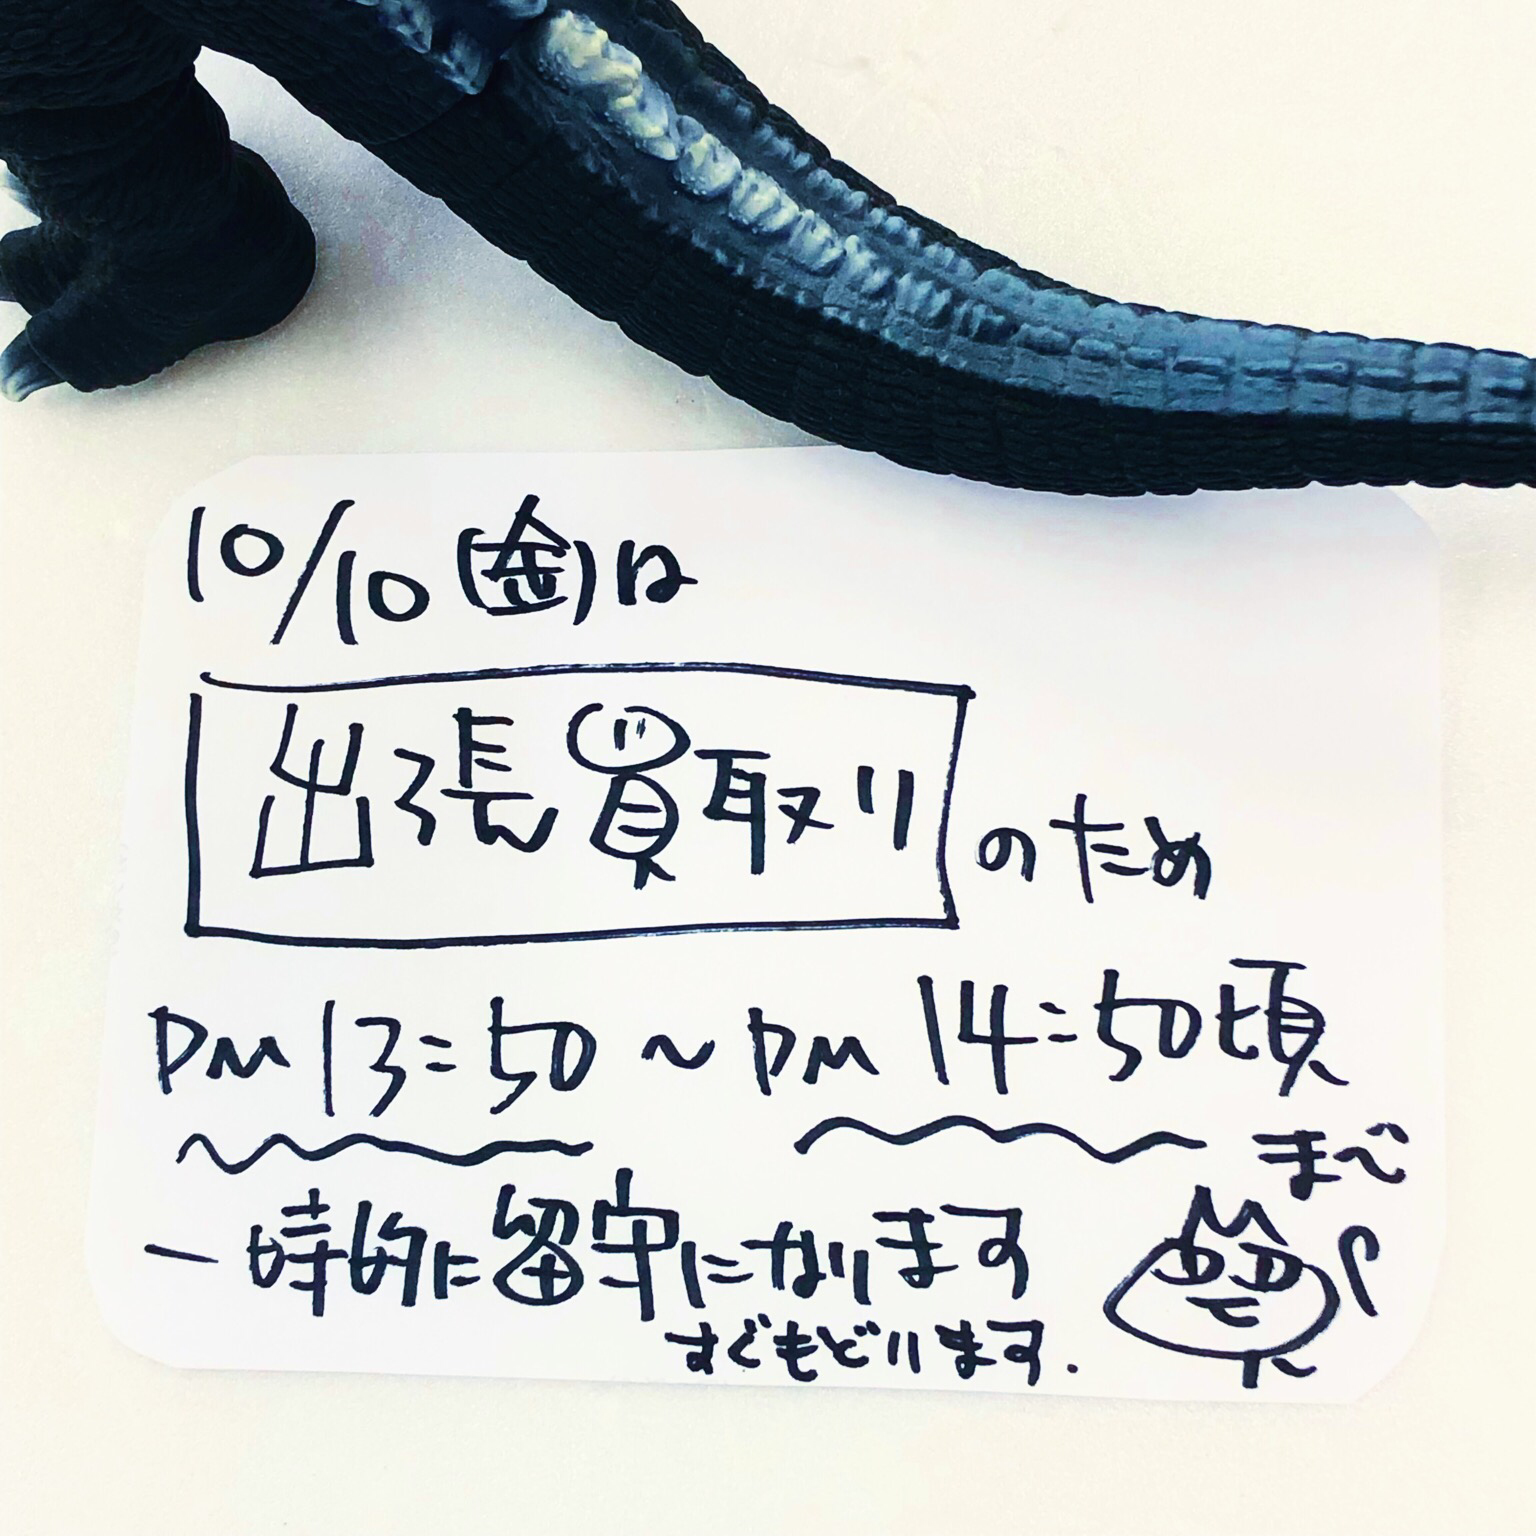 10/10(金)は
出張買取りのため
PM13:50~PM14:50頃
まで
一時的に留守になります
すぐもどります.